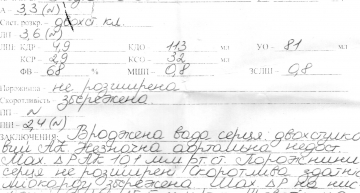 А – 3,3 (N)
двохст кл.
ЛП – 3,6 (N)
КДР – 4,9 КДО – 113 мл УО – 81 мл
КСР – 2,9 КСО – 32 мл
ФВ – 68 % МШП – 0,8 ЗСЛШ – 0,8
не розширена
Скоротливість – збережена
ПП – N
ПШ – 2,4 (N)
ЗАКЛЮЧЕННЯ: Вроджена вада серця: двохстулко
вий АК. Незначна аортальна недост.
Max. ΔР АК 10,1 мм рт. ст. Порожнини
серця не розширені. Скоротлива здатн.
міокарду збережена. Max ΔР на